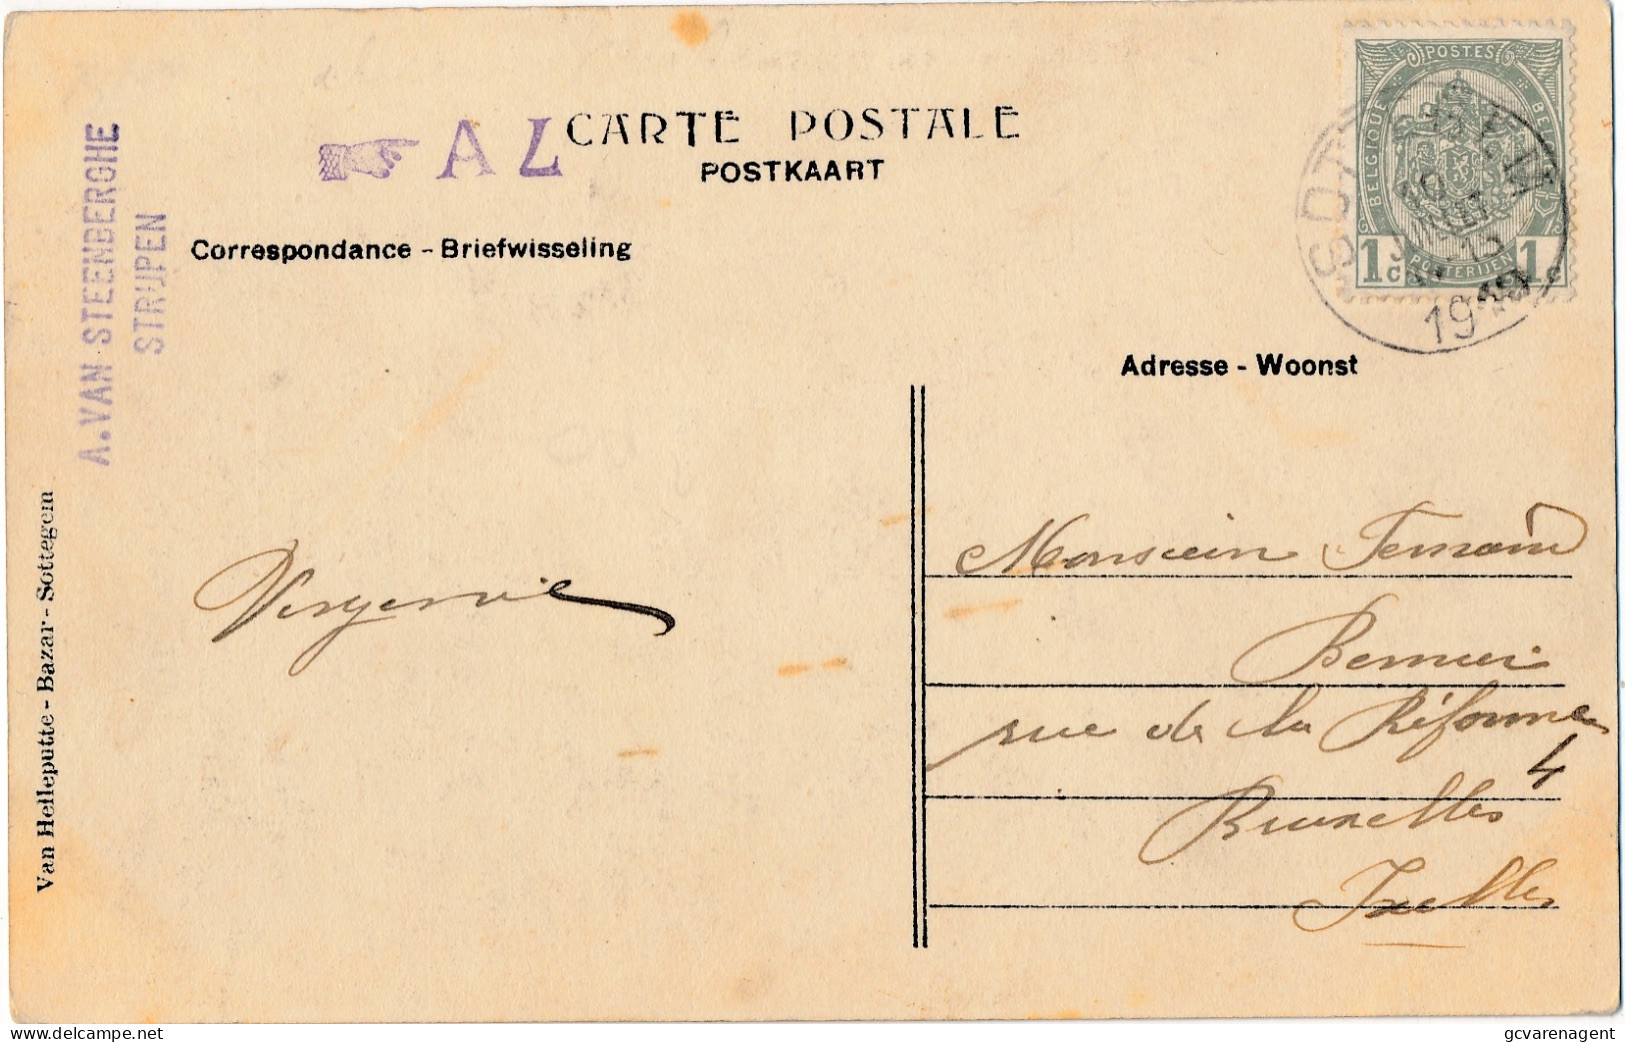 CARTE POSTALE
POSTKAART
AL
A. VAN STEENBERGHE
STRIJPEN
Correspondance - Briefwisseling
POSTES
BELGIQUE
BELGIË
1c 1c
POSTERIJEN
15
19
Adresse - Woonst
Van Helleputte - Bazar - Sottegem
Monsieur Fernand
Bernier
rue de la Réforme
4
Bruxelles
Ixelles
delcampe.net
gcvarenagent